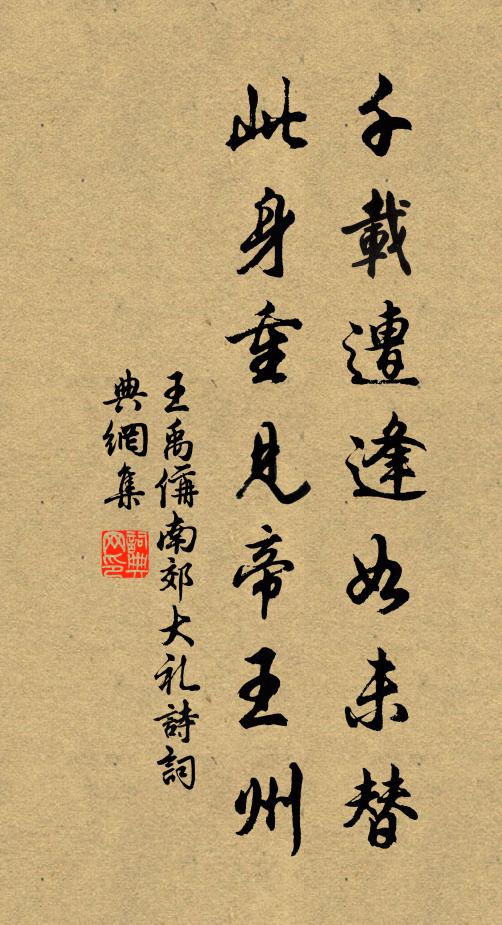 千載遭逢如未替
此身重見帝王州
王禹偁南郊大礼詩詞
典網集
詞典網印